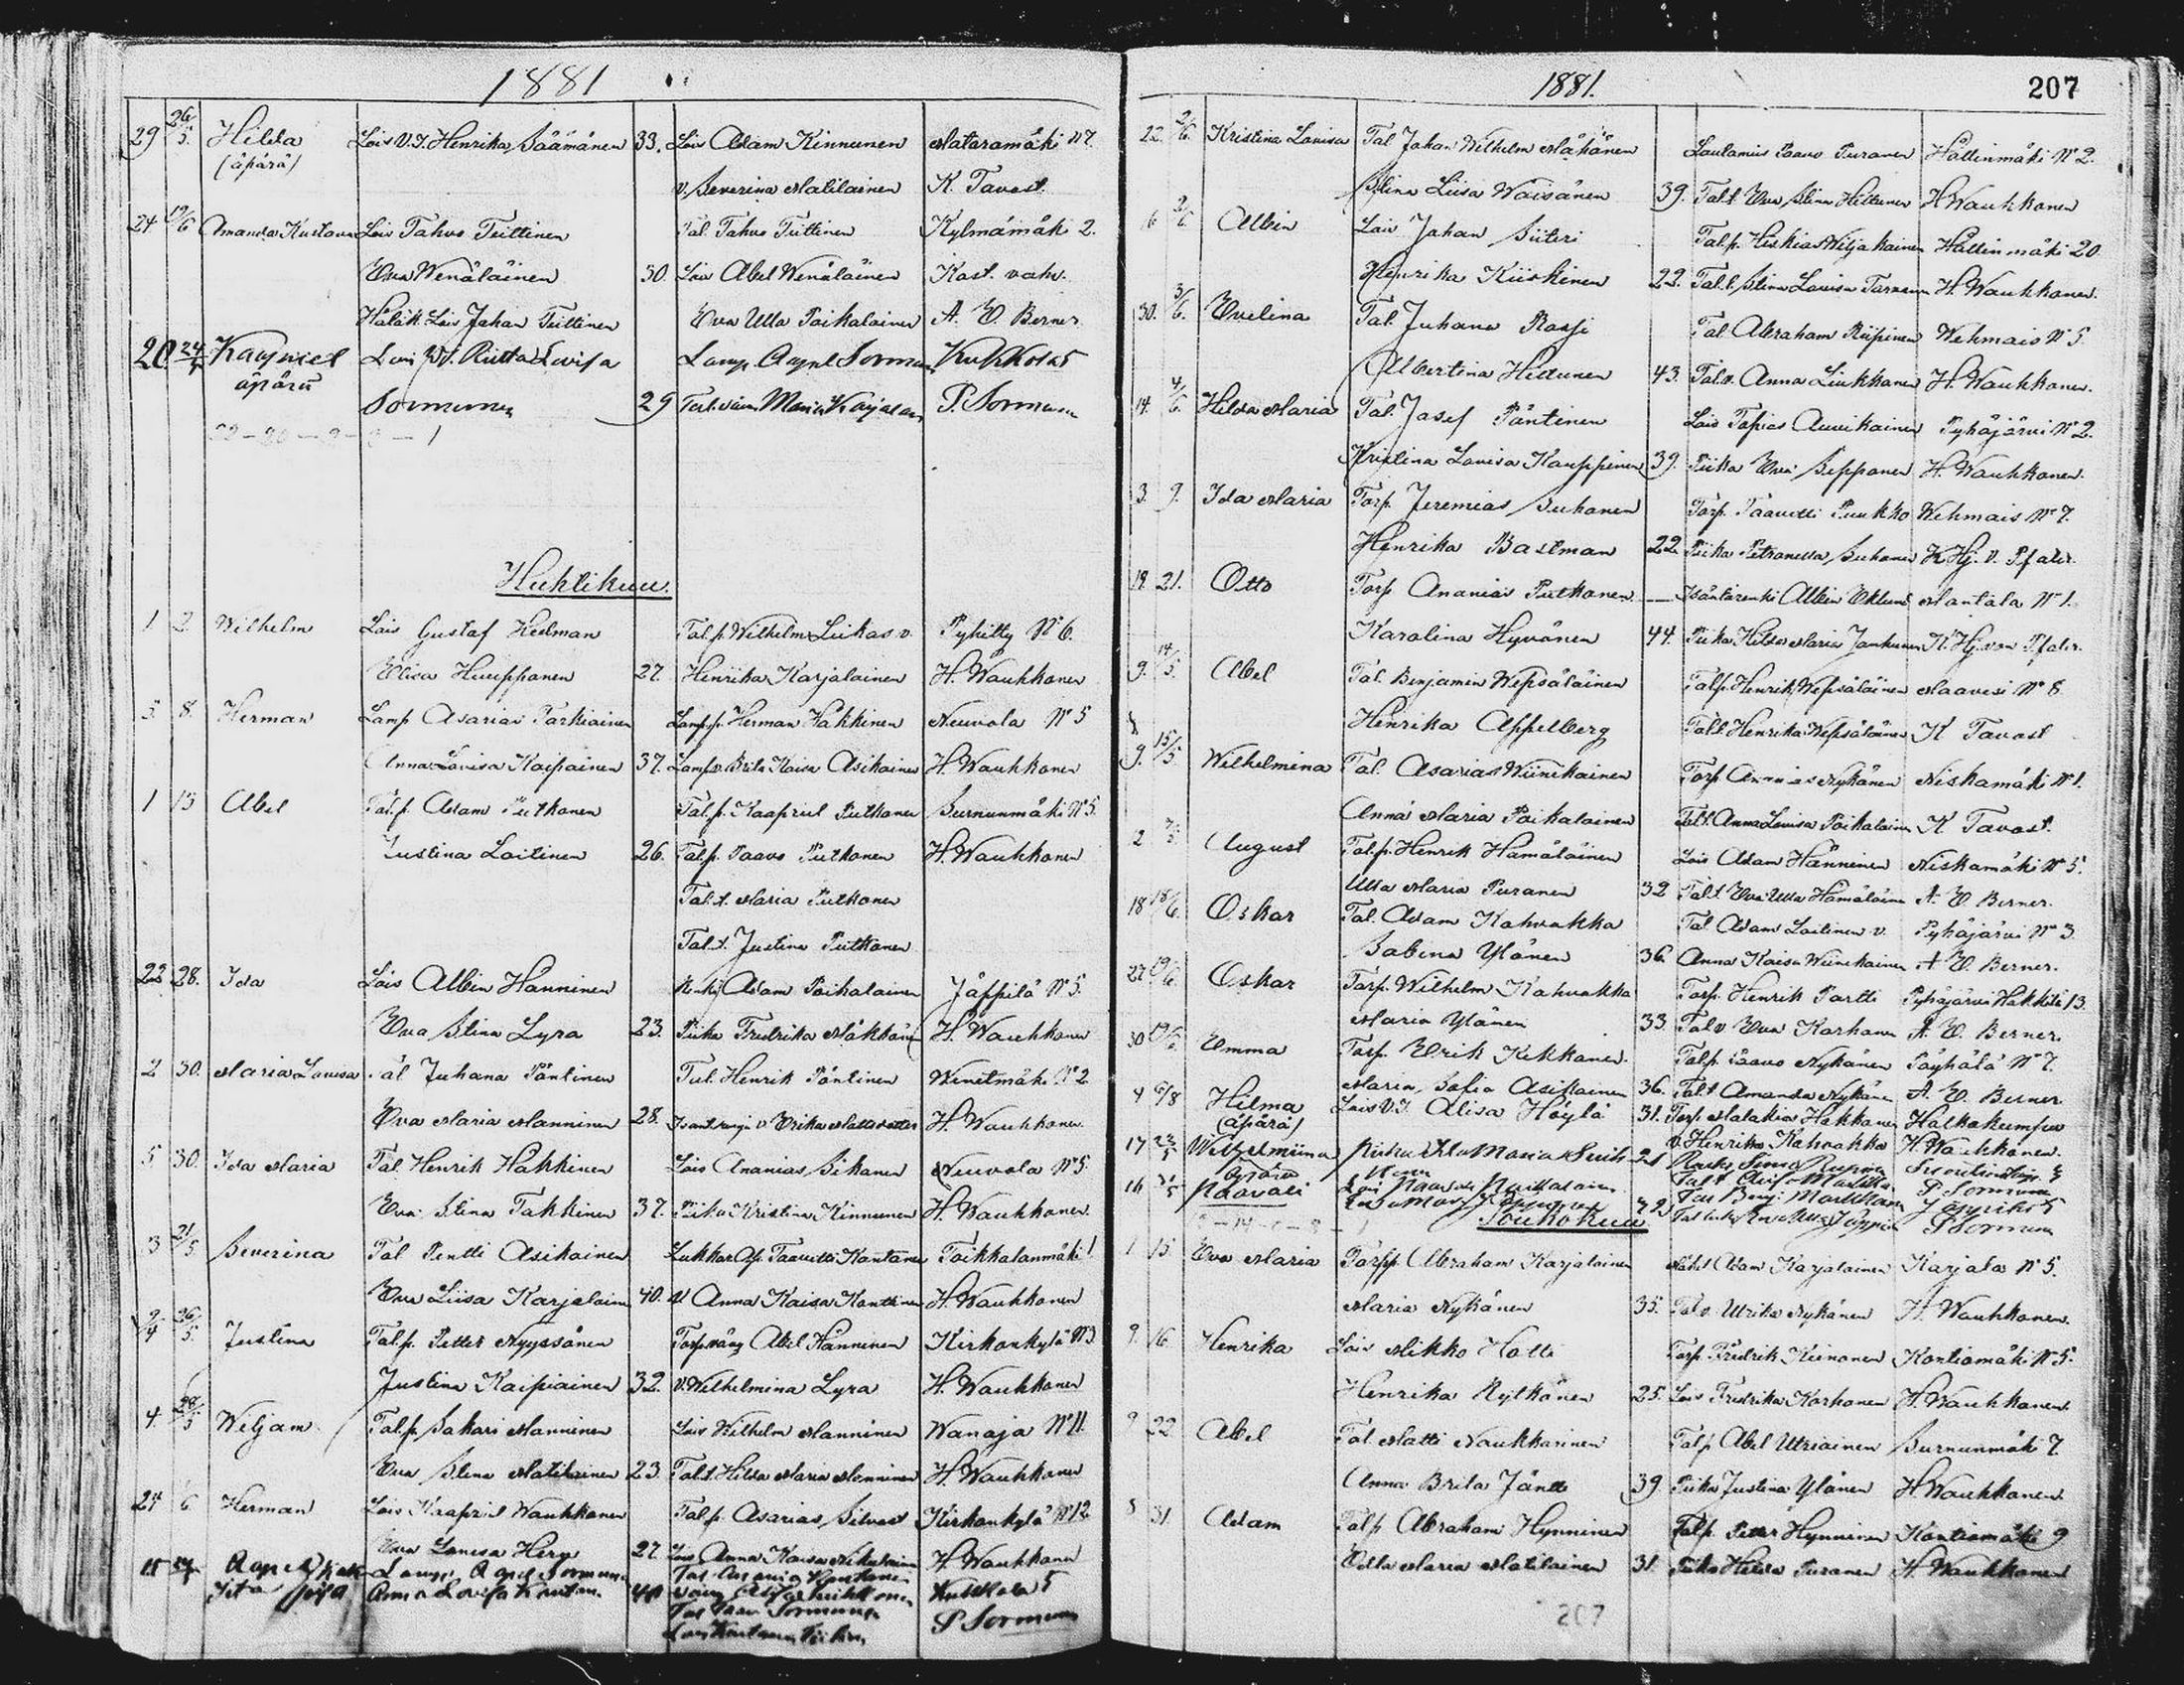 1881
29 26/5. Hilda Lois V.T. Henrika Säämänen 33. Lois Adam Kinnunen Mataramäki N7.
(äpärä) v. Severina Matilainen K. Tavast.
24 19/6 Amanda Kustava Lois Tahvo Teittinen Tal. Tahvo Teittinen Kylmämäki 2.
Eva Wenäläinen 30. Lois Abel Wenäläinen Kast. vahv.
Häläk. Lois Johan Teittinen Eva Ulla Poikalainen A. E. Berner
20 Kaapriel Riitta Lovisa Lamp. Agapel Sormunen Kukkola 5
äpärä Sormunen 29 Maria Karjalan P. Sormunen
Huhtikuu.
1 2 Wilhelm Lois Gustaf Hedman Talp. Wilhelm Liikas v. Pyhitty No 6.
Elisa Huupponen 27. Henrika Karjalainen H. Waukkonen
5 8. Herman Lamp Asarias Parkiainen Lampp. Herman Hakkinen Neuvola No 5
Anna Lovisa Kaipainen 37. Lampv. Brita Kaisa Asikainen H. Waukkonen
1 13 Abel Tal.p. Adam Putkonen Tal.p. Kaapriel Putkonen Surnunmäki No 5.
Justina Laitinen 26. Talp. Paavo Putkonen H. Waukkonen
Tal.t. Maria Putkonen
Tal.t. Justina Putkonen
22 28. Ida Lois Albin Hänninen Renki Adam Poikalainen Jäppilä No 5.
Eva Stina Lyra 23. Piika Fredrika Mäkkönen H. Waukkonen
2 30. Maria Lovisa Tal Juhana Pöntinen Tal. Henrik Pöntinen Wenetmäki No 2
Eva Maria Manninen 28. H. Waukkonen
5 30. Ida Maria Tal Henrik Hakkinen Lois Ananias Sikanen Neuvola No 5.
Eva Stina Takkinen 37. Piika Kristina Kinnunen H. Waukkonen
3 21/5 Severina Tal Pentti Asikainen Lukkar Ap. Taavetti Kontanen Toikkalanmäki 1
Eva Liisa Karjalainen 40. v Anna Kaisa Konttinen H. Waukkonen
9/4 26/5 Justina Talp. Petter Nyyssönen Torp.väv. Abel Hänninen Kirkonkylä No 3
Justina Kaipiainen 32. v. Wilhelmina Lyra H. Waukkonen
4. 28/5 Weljam. Talp. Sakari Manninen Lois Wilhelm Manninen Wanaja No 11
Eva Stina Matilainen 23. Tal.t. Hilda Maria Manninen H. Waukkonen
24 6 Herman Lois Kaapriel Waukkonen Talp. Asarias Silvast Kirkonkylä No 12
Eva Lovisa Herg 27. Lois Anna Kaisa H. Waukkonen
Kukkola 5
P Sormunen
1881.
207
22. 2/6. Kristina Lovisa Tal Johan Wilhelm Mähönen Lautamies Paavo Puranen Hällinmäki No 2.
Stina Liisa Wäisänen 39. Tal.t. Eva Stina Hiltunen H Waukkonen
6 2/6 Albin Lois Johan Siiteri Talp. Hiskias Wiljakainen Hällinmäki 20
Henrika Kiiskinen 22. Tal.t. Stina Lovisa Tarvanen H. Waukkonen.
30. 3/6. Evelina Tal. Juhana Rossi Tal Abraham Riipinen Wehmais No 5.
Albertina Hiltunen 43. Tal.v. Anna Liukkonen H. Waukkonen.
14. 4/6. Hilda Maria Tal. Josef Pöntinen Lois Topias Auvikainen Pyhäjärvi No 2.
Kristina Lovisa Kauppinen 39. Piika Eva Seppänen H. Waukkonen.
3. 9. Ida Maria Torp. Jeremias Suhonen Torp. Taavetti Puukko Wehmais No 7.
Henrika Bastman 22 Piika Petronella Suhonen K Hj. v. Pfaler.
19. 21. Otto Torp Ananias Putkonen — Isäntärenki Albin Eklund Mantala No 1.
Karolina Hyvönen 44. Piika Hilda Maria Jankunen K. Hj. von Pfaler.
9. 14/5. Abel Tal. Benjamin Wepsäläinen Talp. Henrik Wepsäläinen Maavesi No 8
Henrika Appelberg Tal.t. Henrika Wepsäläinen K Tavast
9. 15/5. Wilhelmina Tal. Asarias Wiinikainen Torp Ananias Nykänen Niskamäki No 1.
Anna Maria Poikalainen Tal.t. Anna Lovisa Poikalainen K Tavast.
2 August Tal.p. Henrik Hämäläinen Lois Adam Hänninen Niskamäki No 5.
Ulla Maria Puranen 32 Tal.t. Eva Ulla Hämäläinen A. E. Berner.
18 18/6. Oskar Tal. Adam Kahvakka Tal Adam Laitinen v. Pyhäjärvi No 3.
Sabina Ylönen 36 Anna Kaisa Wiinikainen A. E. Berner.
27 19/6. Oskar Torp. Wilhelm Kahvakka Torp. Henrik Partti Pyhäjärvi Hakkila 13.
Maria Ylönen 33. Tal v Eva Korhonen A. E. Berner.
30 19/6 Emma Torp. Erik Kekkonen Talp. Paavo Nykänen Päyhölä No 7.
Maria Sofia Asikainen 36. Tal.t. Amanda Nykänen A. E. Berner
4 6/8 Hilma Lois V.T. Alisa Höylä 31. Torp Malakias Hakkanen Halkokumpu
(äpärä) v. Henrika Kahvakka H. Waukkonen.
17 Wilhelmiina 21 P Sormunen
16 31/5 Paavali Jäppilä 5
Toukokuu P Sormunen
1. 15. Eva Maria Torpp. Abraham Karjalainen Adam Karjalainen Karjala No 5.
Maria Nykänen 35. Tal v. Ulrika Nykänen H. Waukkonen.
9. 16 Henrika Lois Mikko Hotti Torp. Fredrik Kinnonen Kontiomäki No 5.
Henrika Rytkönen 25. Lois Fredrika Korhonen H. Waukkonen.
9 22 Abel Tal. Matti Naukkarinen Talp Abel Utriainen Surnunmäki 7.
Anna Brita Jäntti 39. Piika Justina Ylönen H. Waukkonen
5 31 Adam Talp Abraham Hynninen Talp. Petter Hynninen Kontiomäki 9
Edla Maria Matilainen 31. Piika Hilda Puranen H. Waukkonen
207